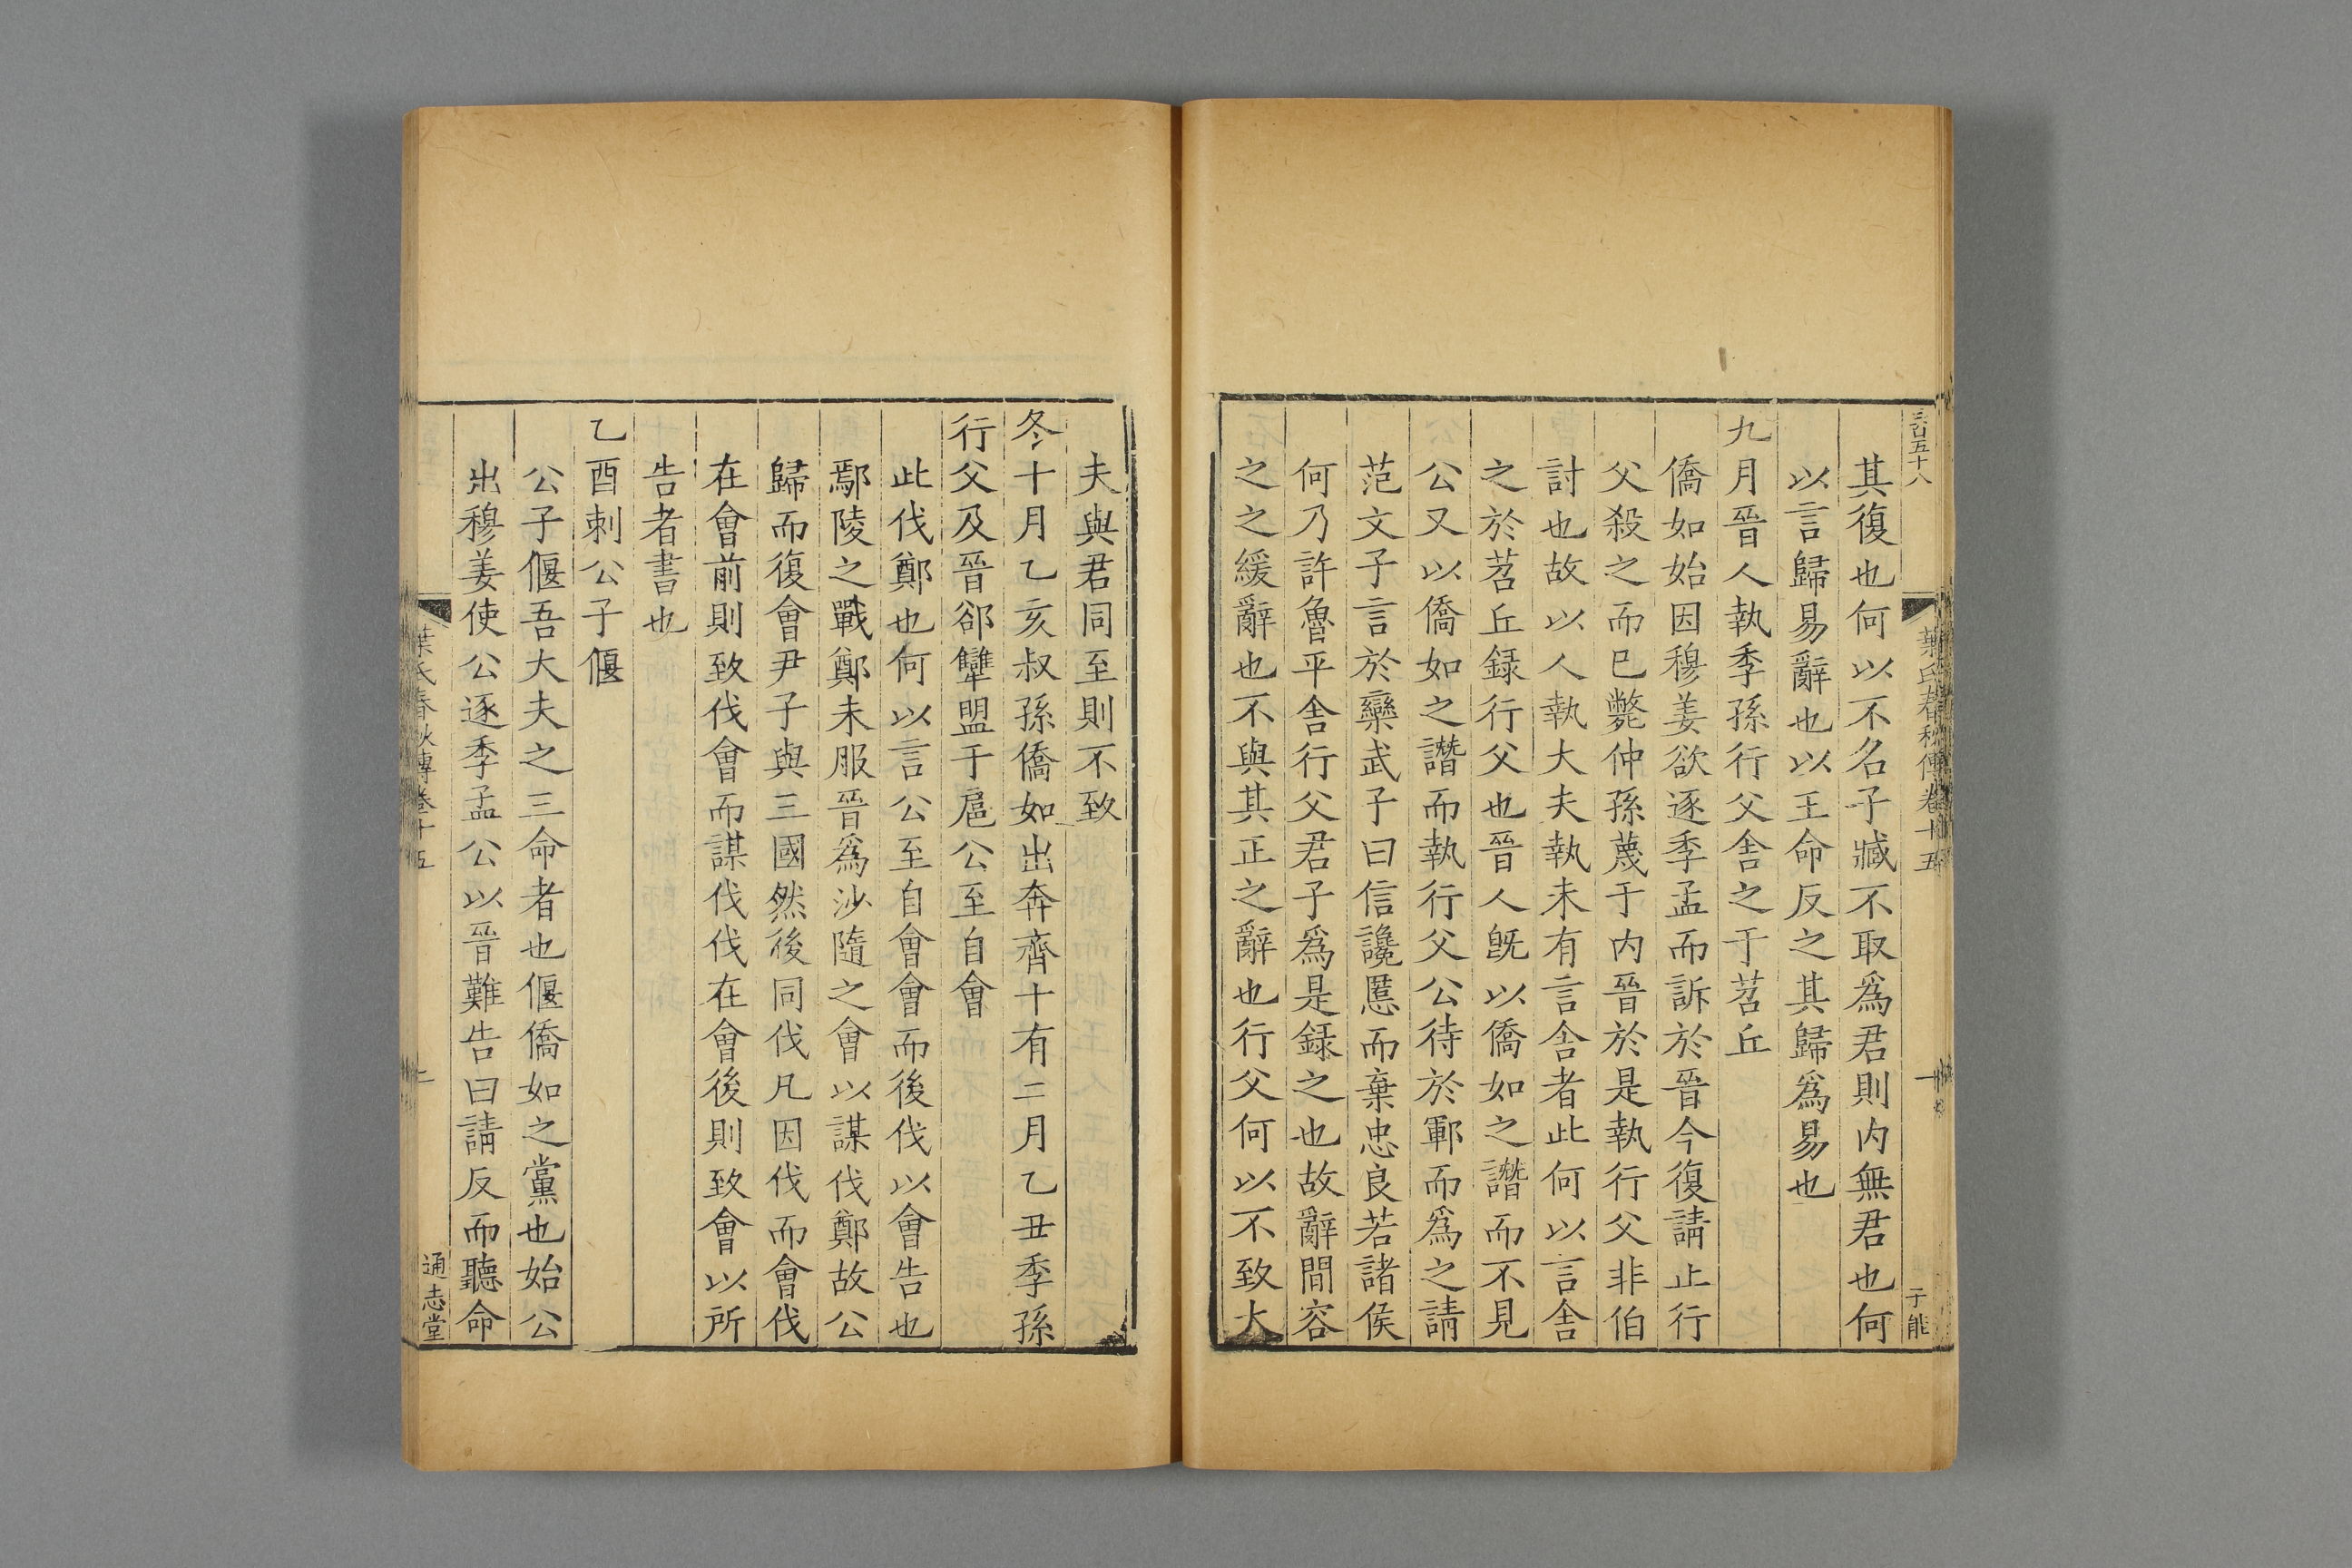 三百五十八
葉氏春秋傳卷十五
于能
其復也何以不名子臧不取爲君則内無君也何
以言歸易辭也以王命反之其歸爲易也
九月晉人執季孫行父舍之于苕丘
僑如始因穆姜欲逐季孟而訴於晉今復請止行
父殺之而巳斃仲孫蔑于内晉於是執行父非伯
討也故以人執大夫執未有言舍者此何以言舍
之於苕丘録行父也晉人既以僑如之譖而不見
公又以僑如之譖而執行父公待於鄆而爲之請
范文子言於欒武子曰信讒慝而棄忠良若諸侯
何乃許魯平舍行父君子爲是録之也故辭間容
之之緩辭也不與其正之辭也行父何以不致大
夫與君同至則不致
冬十月乙亥叔孫僑如出奔齊十有二月乙丑季孫
行父及晉郤犫盟于扈公至自會
此伐鄭也何以言公至自會會而後伐以會告也
鄢陵之戰鄭未服晉爲沙隨之會以謀伐鄭故公
歸而復會尹子與三國然後同伐凡因伐而會伐
在會前則致伐會而謀伐伐在會後則致會以所
告者書也
乙酉刺公子偃
公子偃吾大夫之三命者也偃僑如之黨也始公
出穆姜使公逐季孟公以晉難告曰請反而聽命
葉氏春秋傳卷十五
通志堂